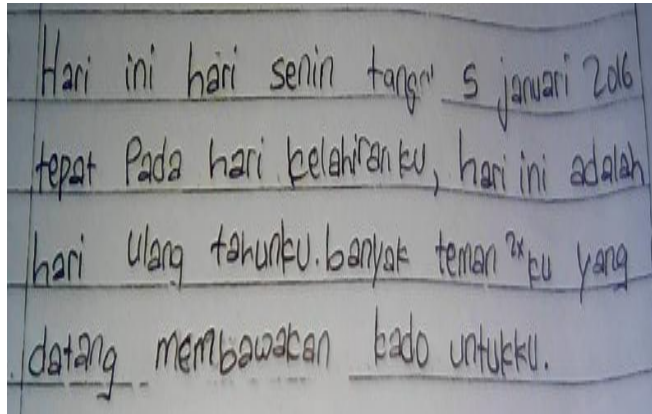 Hari ini hari senin tanggal 5 januari 2016
tepat Pada hari kelahiranku, hari ini adalah
hari ulang tahunku. banyak teman 2x ku yang
datang membawakan kado untukku.